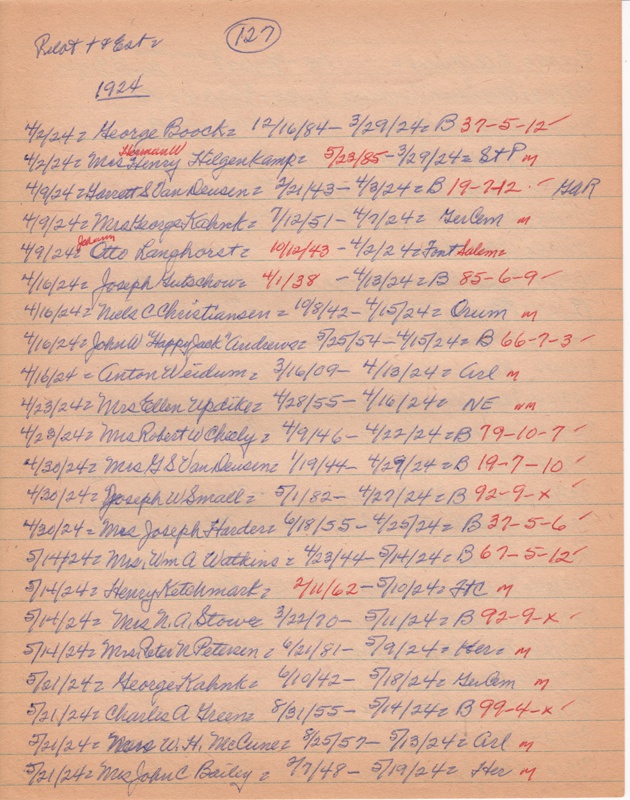 Pilot + & Ent =
127
1924
4/2/24 = George Boock = 12/16/84 - 3/29/24 = B 37-5-12 ✓
Herman W
4/2/24 = Mrs Henry Hilgenkamp = 5/23/85 - 3/29/24 = St P m
4/9/24 = Garrett S Van Deusen = 2/21/43 - 4/3/24 = B 19-7-12 ✓ GAR
4/9/24 = Mrs George Kahnk = 7/12/51 - 4/7/24 = Ger Cem m
Johann
4/9/24 = Otto Langhorst = 10/12/43 - 4/2/24 = Font Salem =
4/16/24 = Joseph Gutschow = 4/1/38 - 4/13/24 = B 85-6-9 ✓
4/16/24 = Niels C Christiansen = 10/8/42 - 4/15/24 = Orum m
4/16/24 = John W "Happy Jack" Andrews = 5/25/54 - 4/15/24 = B 66-7-3 ✓
4/16/24 = Anton Weidum = 3/16/09 - 4/13/24 = Arl m
4/23/24 = Mrs Ellen Updike = 4/28/55 - 4/16/24 = NE nm
4/23/24 = Mrs Robert W Cheely = 4/9/46 - 4/22/24 = B 79-10-7 ✓
4/30/24 = Mrs G S Van Deusen = 1/19/44 - 4/29/24 = B 19-7-10 ✓
4/30/24 = Joseph W Small = 5/1/82 - 4/27/24 = B 92-9-x ✓
4/30/24 = Mrs Joseph Harder = 6/18/55 - 4/25/24 = B 37-5-6 ✓
5/14/24 = Mrs. Wm A Watkins = 4/23/44 - 5/14/24 = B 67-5-12 ✓
5/14/24 = Henry Ketchmark = 2/11/62 - 5/10/24 = HC m
5/14/24 = Mrs N. A. Stowe = 3/22/70 - 5/11/24 = B 92-9-x ✓
5/14/24 = Mrs. Peter N Petersen = 6/21/81 - 5/9/24 = Her = m
5/21/24 = George Kahnk = 6/10/42 - 5/18/24 = Ger Cem m
5/21/24 = Charles A Green = 8/31/55 - 5/14/24 = B 99-4-x ✓
5/21/24 = Mrs W. H. McCune = 8/25/57 - 5/13/24 = Arl m
5/21/24 = Mrs John C Bailey = 2/7/48 - 5/19/24 = Her m